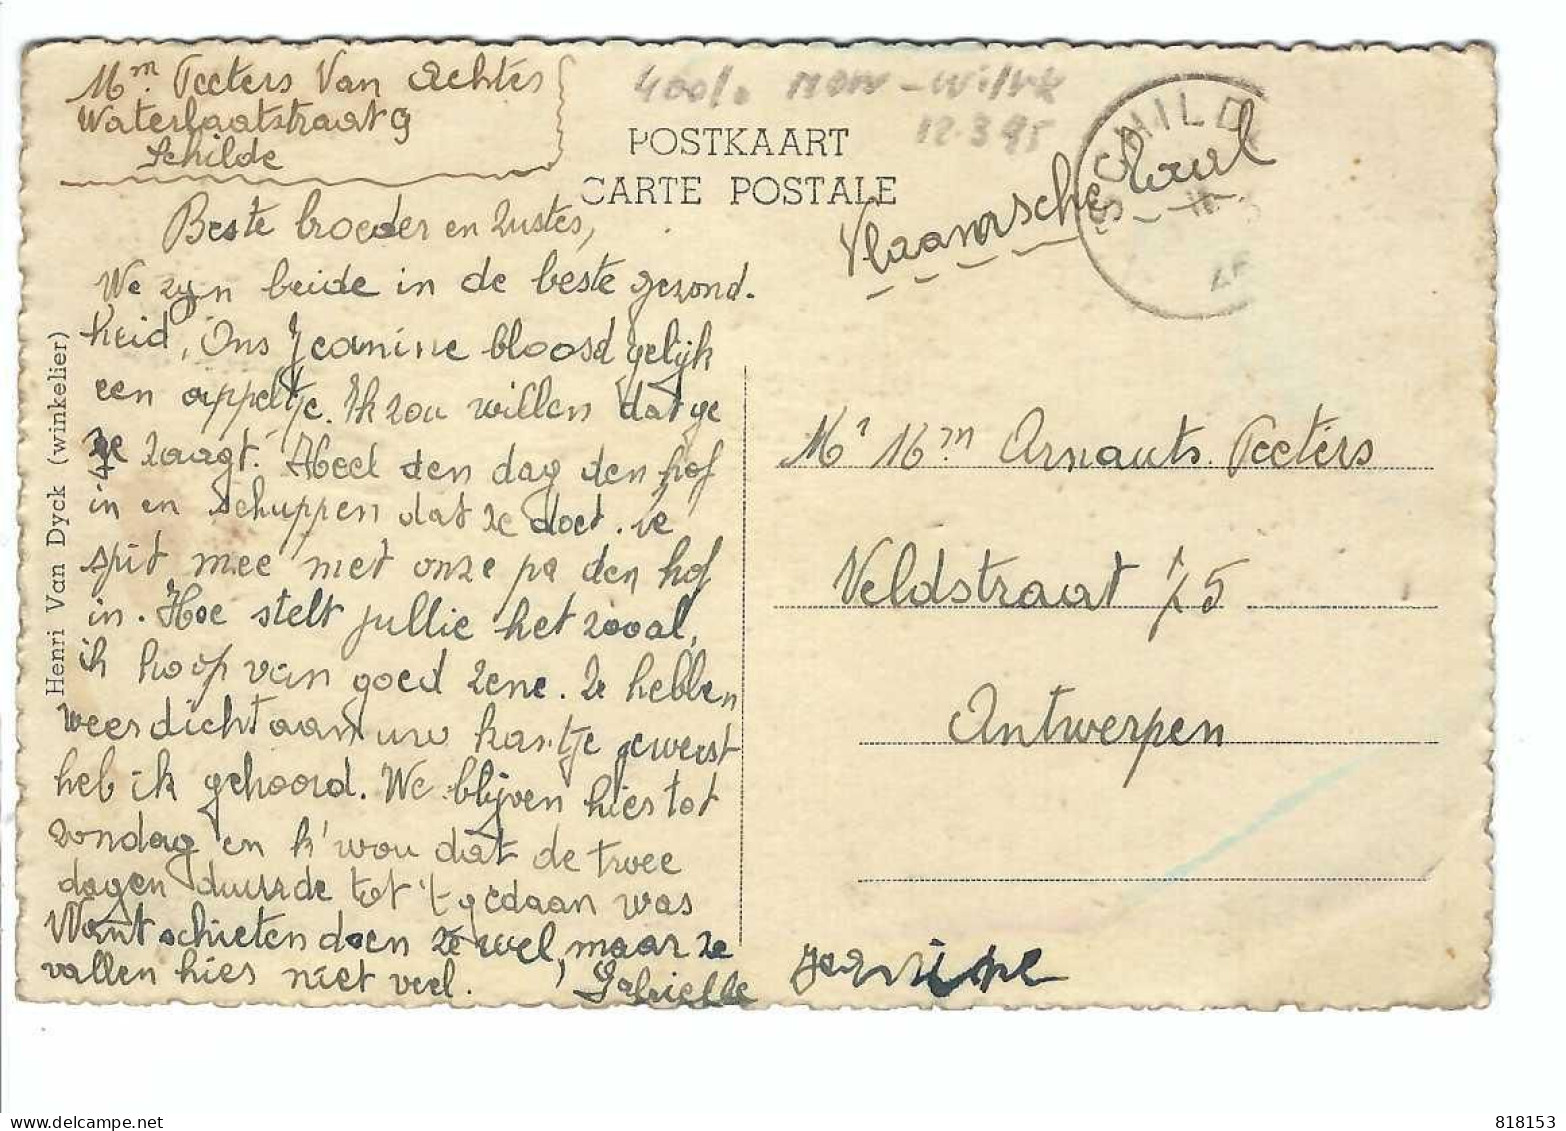 Mᵐ Peeters Van Echtes
Waterlaatstraat 9
Schilde
400/.
12.3.95
POSTKAART
CARTE POSTALE
SCHILD
Vlaamsche
Beste broeder en zustes,
We zyn beide in de beste gezond-
heid, Ons Jeanine bloosd gelijk
een appeltje. Ik zou willen dat ge
ze zaagt. Heel den dag den hof
in en schuppen dat ze doet. ie
spit mee met onze pa den hof
in. Hoe stelt jullie het zooal,
ik hoop van goed zene. Ze hebben
weer dicht aan uw kantje geweest
heb ik gehoord. We blijven hier tot
zondag en k'wou dat de twee
dagen duurde tot 't gedaan was
Want schieten doen ze wel, maar ze
vallen hier niet veel. Gabrielle
Henri Van Dyck (winkelier)
Mʳ Mᵐ Arnauts. Peeters
Veldstraat 75
Antwerpen
Jeannine
www.delcampe.net
818153